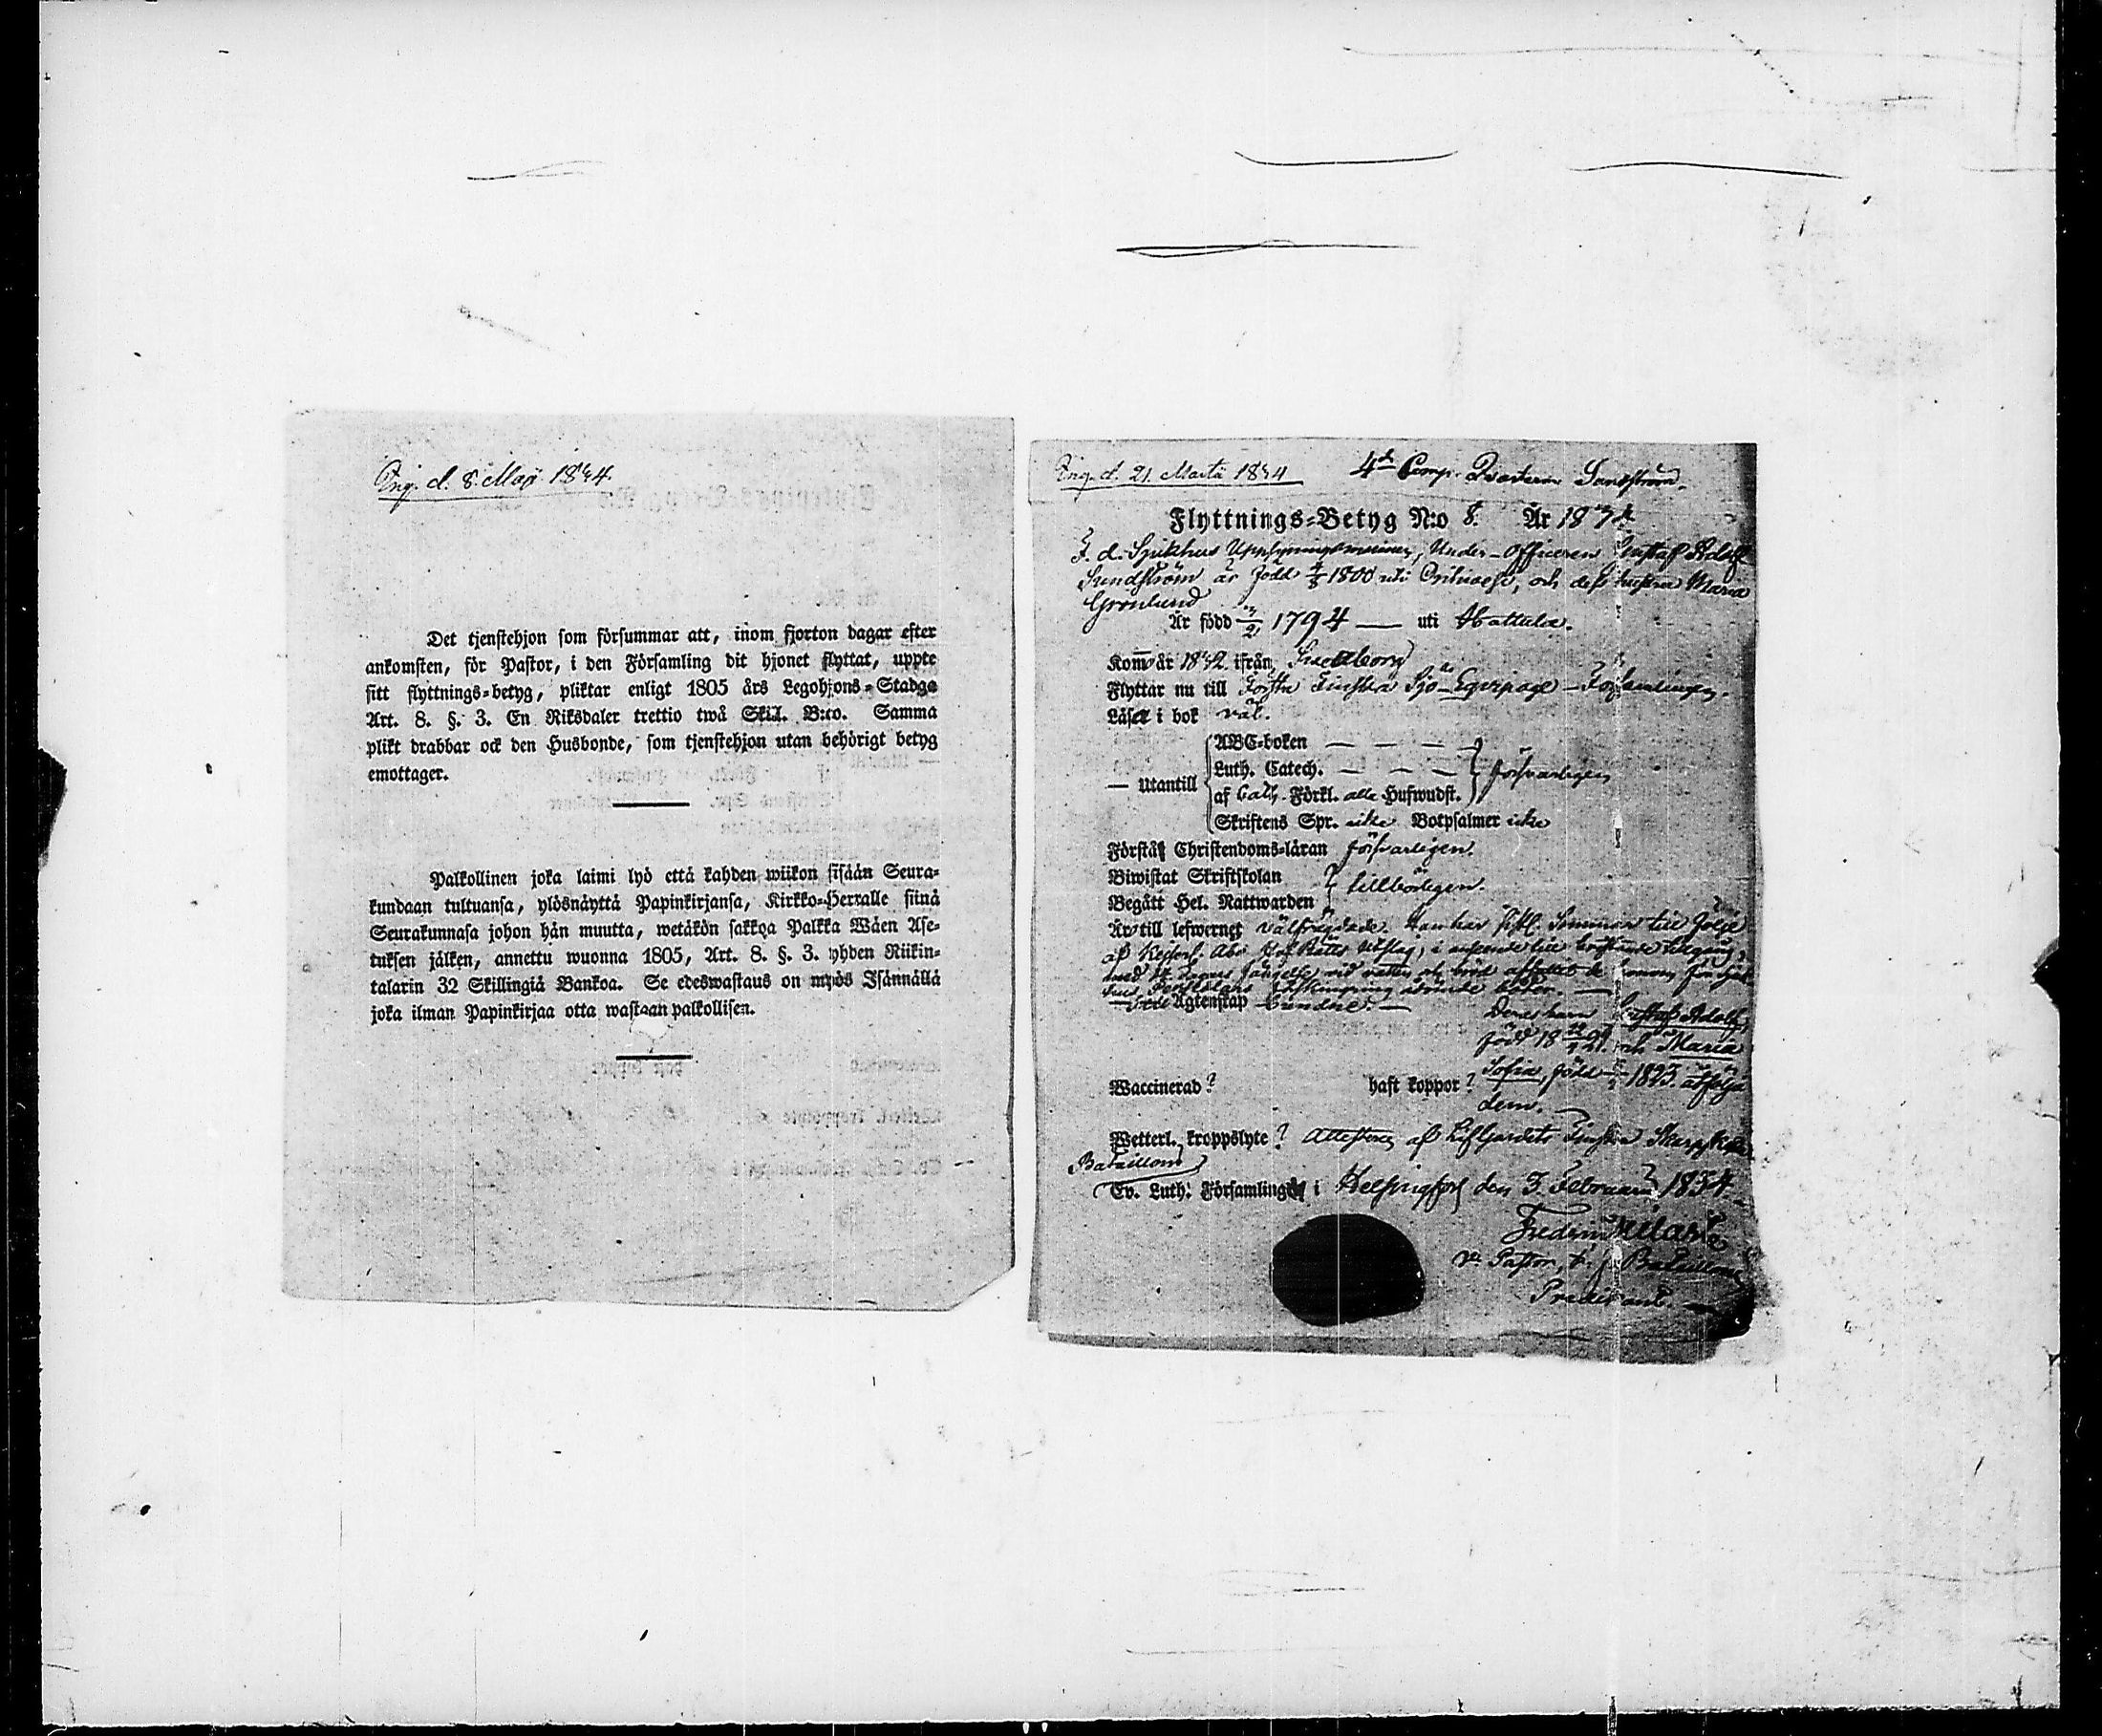 Ing. d. 8. Maji 1834.
Det tjenstehjon som försummar att, inom fjorton dagar efter
ankomsten, för Pastor, i den Församling dit hjonet flyttat, uppte
sitt flyttnings-betyg, pliktar enligt 1805 års Legohjons-Stadga
Art. 8. §. 3. En Riksdaler trettio twå Skil. B:co. Samma
plikt drabbar ock den Husbonde, som tjenstehjon utan behörigt betyg
emottager.
Palkollinen joka laimi lyö että kahden wiikon sisään Seura-
kundaan tultuansa, ylösnäyttä Papinkirjansa, Kirkko-Herralle siinä
Seurakunnasa johon hän muutta, wetäkön sakkoa Palkka Wäen Ase-
tuksen jälken, annettu wuonna 1805, Art. 8. §. 3. yhden Riikin-
talarin 32 Skillingiä Bankoa. Se edeswastaus on myös Isännällä
joka ilman Papinkirjaa otta wastaan palkollisen.
Ing. d. 21. Martii 1834 4de Comp. Sundström.
Flyttnings-Betyg N:o 8. År 1834
F. d. Under-Officeren Gustaf Adolf
Sundström är född 1800 uti och dess hustru Maria
Grönlund
Är född 1794 — uti Hattula.
Kom år 1832 ifrån Sveaborg
Flyttar nu till Första Finska Sjö-Equipage-Församlingen.
Läsa i bok väl.
— Utantill
ABC-boken — — — —
Luth. Catech. — — —
försvarligen
af Förkl. alla Hufwudst.
Skriftens Spr. icke Botpsalmer icke
Förstå Christendoms-läran försvarligen.
Biwistat Skriftskolan
tillbörligen.
Begått Hel. Nattwarden
Är till lefwernet välfrägdade. Han har sistl. Sommar till följe
af Kejserl. Åbo Hof Rätts Utslag, i anseende till
med dagars fängelse vid vatten och bröd
Ägtenskap bundne. —
Deras barn Gustaf Adolf,
född och Maria
Sofia, född 1823. åtfölja
dem. —
Waccinerad? haft koppor?
Wetterl. kroppslyte? Attesterar af Lif Gardets Finska Skarpskytte
Bataillons
Ev. Luth: Församling i Helsingfors den 3 Februarii 1834.
v. Pastor, t. f. Bataillons
Predikant. —